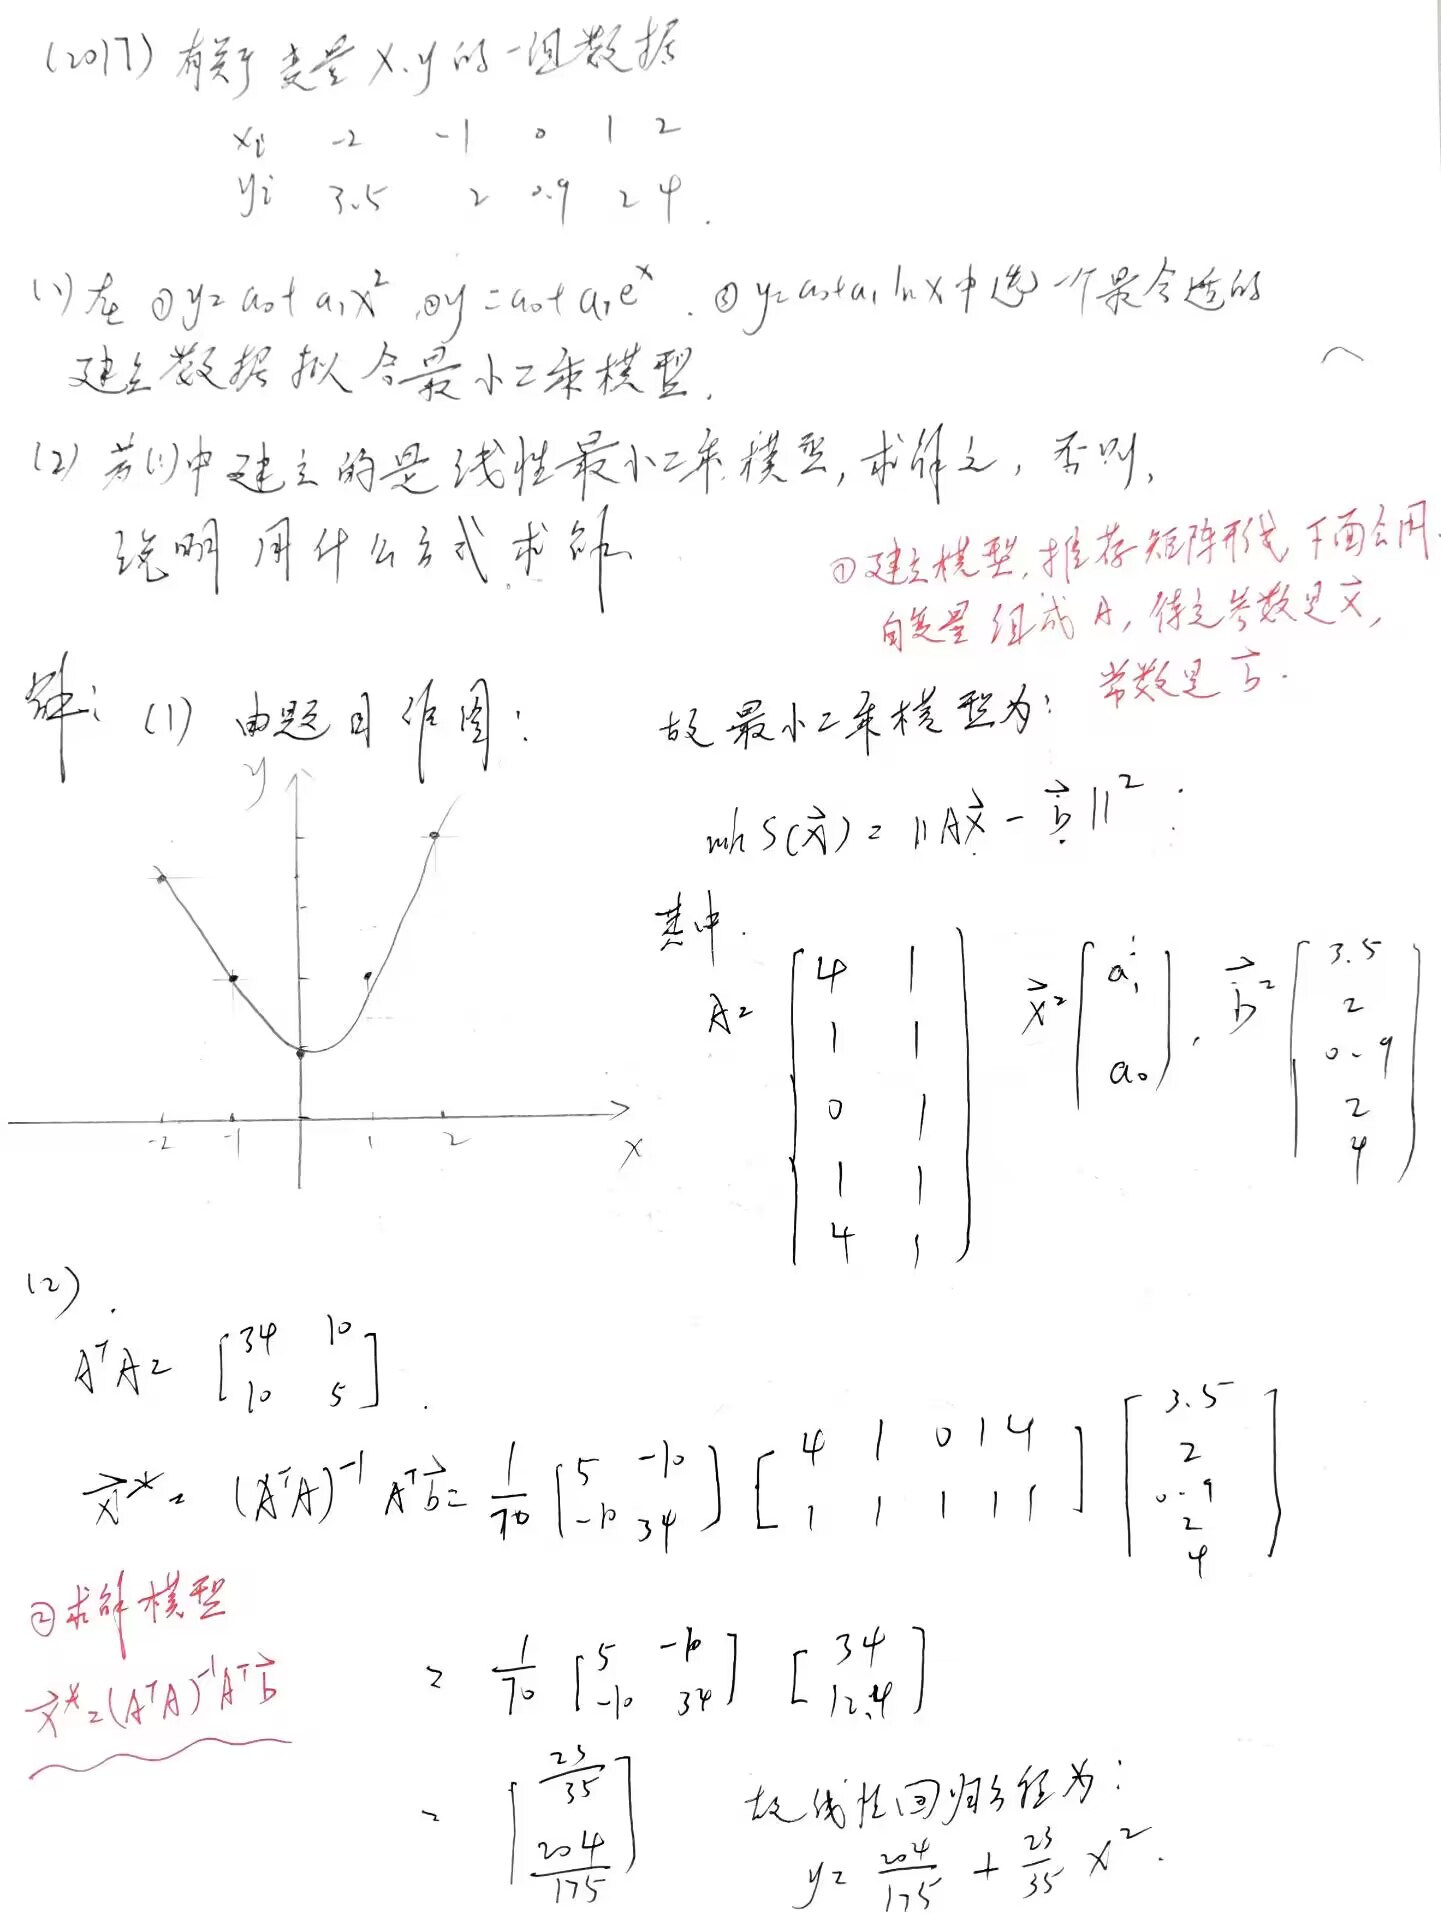 (2017) 有关于变量 x、y的一组数据
xi -2 -1 0 1 2
yi 3.5 2 0.9 2 4.
(1) 在 ① y=a₀+a₁x², ② y=a₀+a₁eˣ. ③ y=a₀+a₁lnx, 中选一个最合适的
建立数据拟合最小二乘模型.
(2) 若(1)中建立的是线性最小二乘模型, 求解之, 否则,
说明用什么方式求解.
①建立模型, 推荐矩阵形式 下面会用.
自变量组成A, 待定参数是x⃗,
常数是b⃗.
解: (1) 由题目作图:
y
-2 -1 1 2 x
故最小二乘模型为:
min S(x⃗) = ||Ax⃗ - b⃗||²
其中.
A = [4 1
1 1
0 1
1 1
4 1]
x⃗ = [a₁
a₀],
b⃗ = [3.5
2
0.9
2
4]
(2).
AᵀA = [34 10
10 5].
x⃗* = (AᵀA)⁻¹Aᵀb⃗ = 1/70 [5 -10
-10 34] [4 1 0 1 4
1 1 1 1 1] [3.5
2
0.9
2
4]
②求解模型
x⃗* = (AᵀA)⁻¹Aᵀb⃗
= 1/70 [5 -10
-10 34] [34
12.4]
= [23/35
204/175]
故线性回归方程为:
y = 204/175 + 23/35 x².